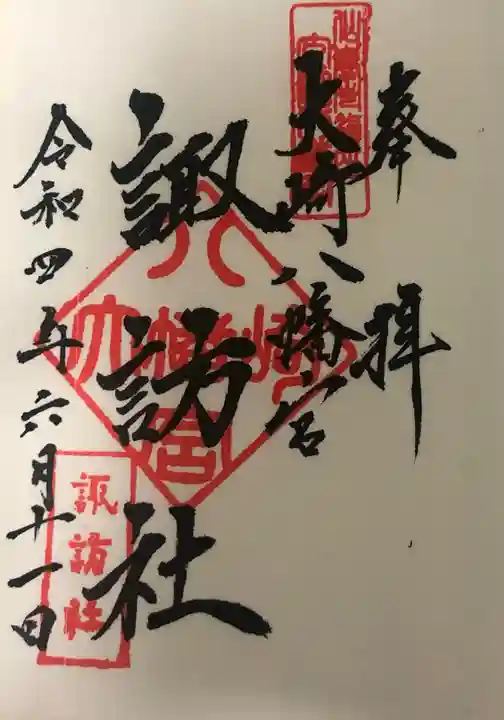 奉拝
大崎八幡宮
諏訪社
令和四年六月十一日
諏訪社